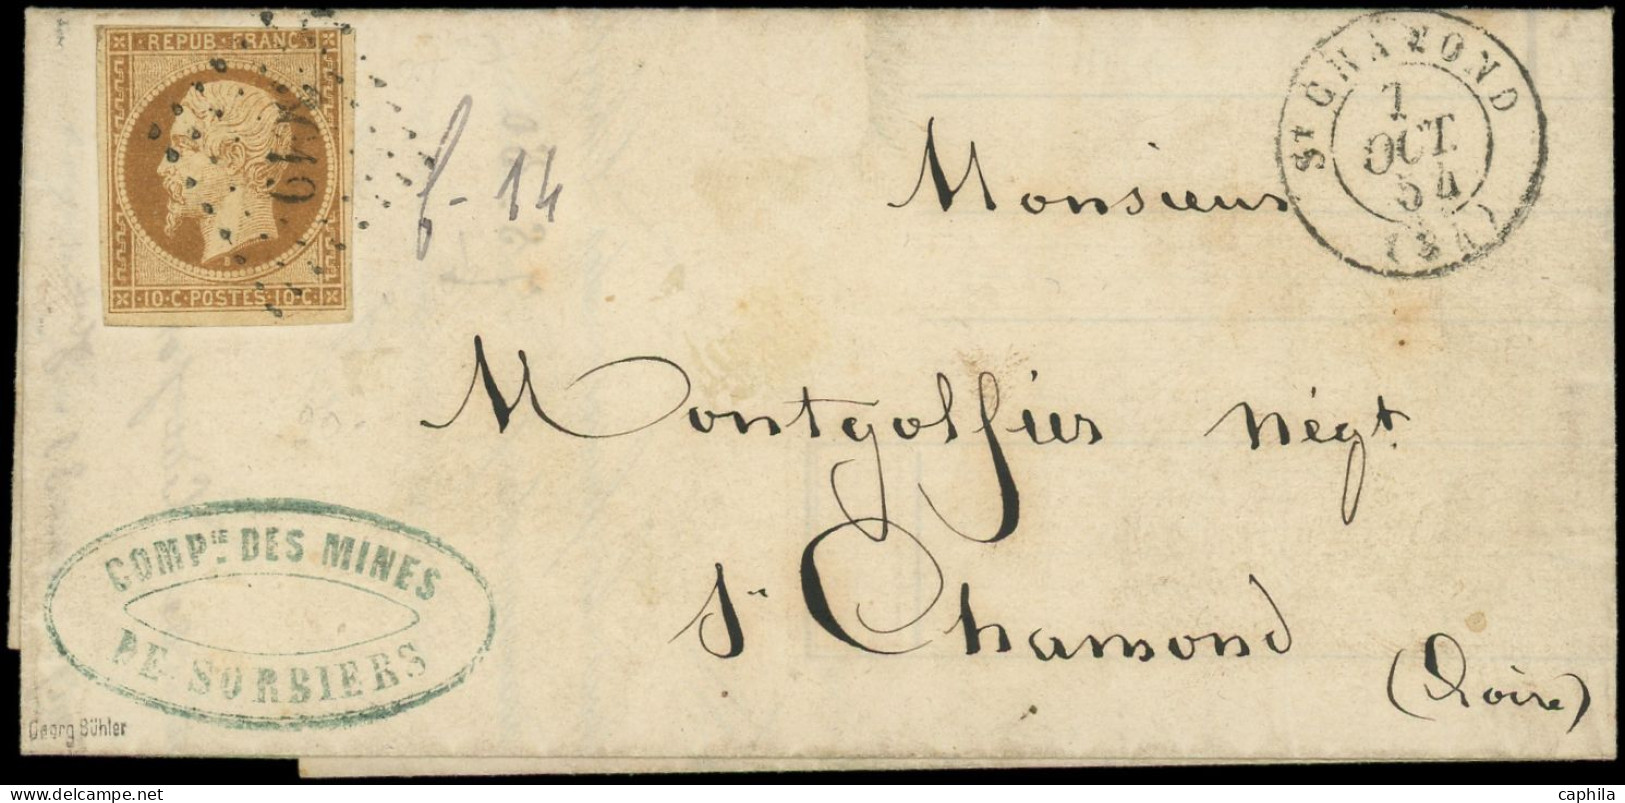 REPUB. FRANC.
10·C·POSTES·10·C
f- 14
Monsieur
St CHAMOND
7
OCT.
54
(84)
Montgolfier Négt
St Chamond
(Loire)
COMPIE DES MINES
DE SORBIERS
Georg Bühler
caphila